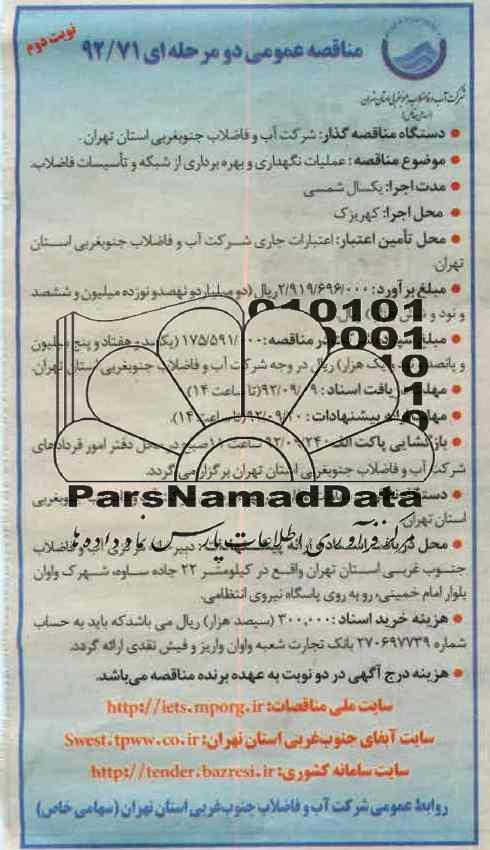 نوبت دوم
مناقصه عمومی دو مرحله ای ۹۲/۷۱
شرکت آب و فاضلاب جنوبغربی استان تهران
(سهامی خاص)
● دستگاه مناقصه گذار: شرکت آب و فاضلاب جنوبغربی استان تهران.
● موضوع مناقصه: عملیات نگهداری و بهره برداری از شبکه و تأسیسات فاضلاب.
● مدت اجرا: یکسال شمسی
● محل اجرا: کهریزک
● محل تأمین اعتبار: اعتبارات جاری شرکت آب و فاضلاب جنوبغربی استان
تهران.
● مبلغ برآورد: ۲/۹۱۹/۶۹۶/۰۰۰ ریال (دو میلیارد و نهصد و نوزده میلیون و ششصد
و نود و ریال
● مبلغ در مناقصه: ۱۷۵/۵۹۱/۰۰۰ (یکصد و هفتاد و پنج میلیون
و پانصد و نود و یک هزار) ریال در وجه شرکت آب و فاضلاب جنوبغربی استان تهران.
● مهلت دریافت اسناد: ۹۲/۰۹/ (تا ساعت ۱۴)
● مهلت ارائه پیشنهادات: ۹۲/۰۹/۲۰ (تا ساعت ۱۴).
● بازگشایی پاکت الف: ۹۲/۰۹/۲۴ ساعت صبح در محل دفتر امور قراردادهای
شرکت آب و فاضلاب جنوبغربی استان تهران برگزار می گردد.
010101
ParsNamadData
مرکز فرآوری اطلاعات پارس نماد داده ها
● دستگاه جنوبغربی
استان تهران
● محل دریافت آب و فاضلاب
جنوب غربی استان تهران واقع در کیلومتر ۲۲ جاده ساوه، شهرک واوان
بلوار امام خمینی، رو به روی پاسگاه نیروی انتظامی.
● هزینه خرید اسناد: ۳۰۰,۰۰۰ (سیصد هزار) ریال می باشد که باید به حساب
شماره ۲۷۰۶۹۷۷۳۹ بانک تجارت شعبه واوان واریز و فیش نقدی ارائه گردد.
● هزینه درج آگهی در دو نوبت به عهده برنده مناقصه می‌باشد.
سایت ملی مناقصات: http://iets.mporg.ir
سایت آبفای جنوب غربی استان تهران: Swest.tpww.co.ir
سایت سامانه کشوری: http://tender.bazresi.ir
روابط عمومی شرکت آب و فاضلاب جنوب غربی استان تهران (سهامی خاص)